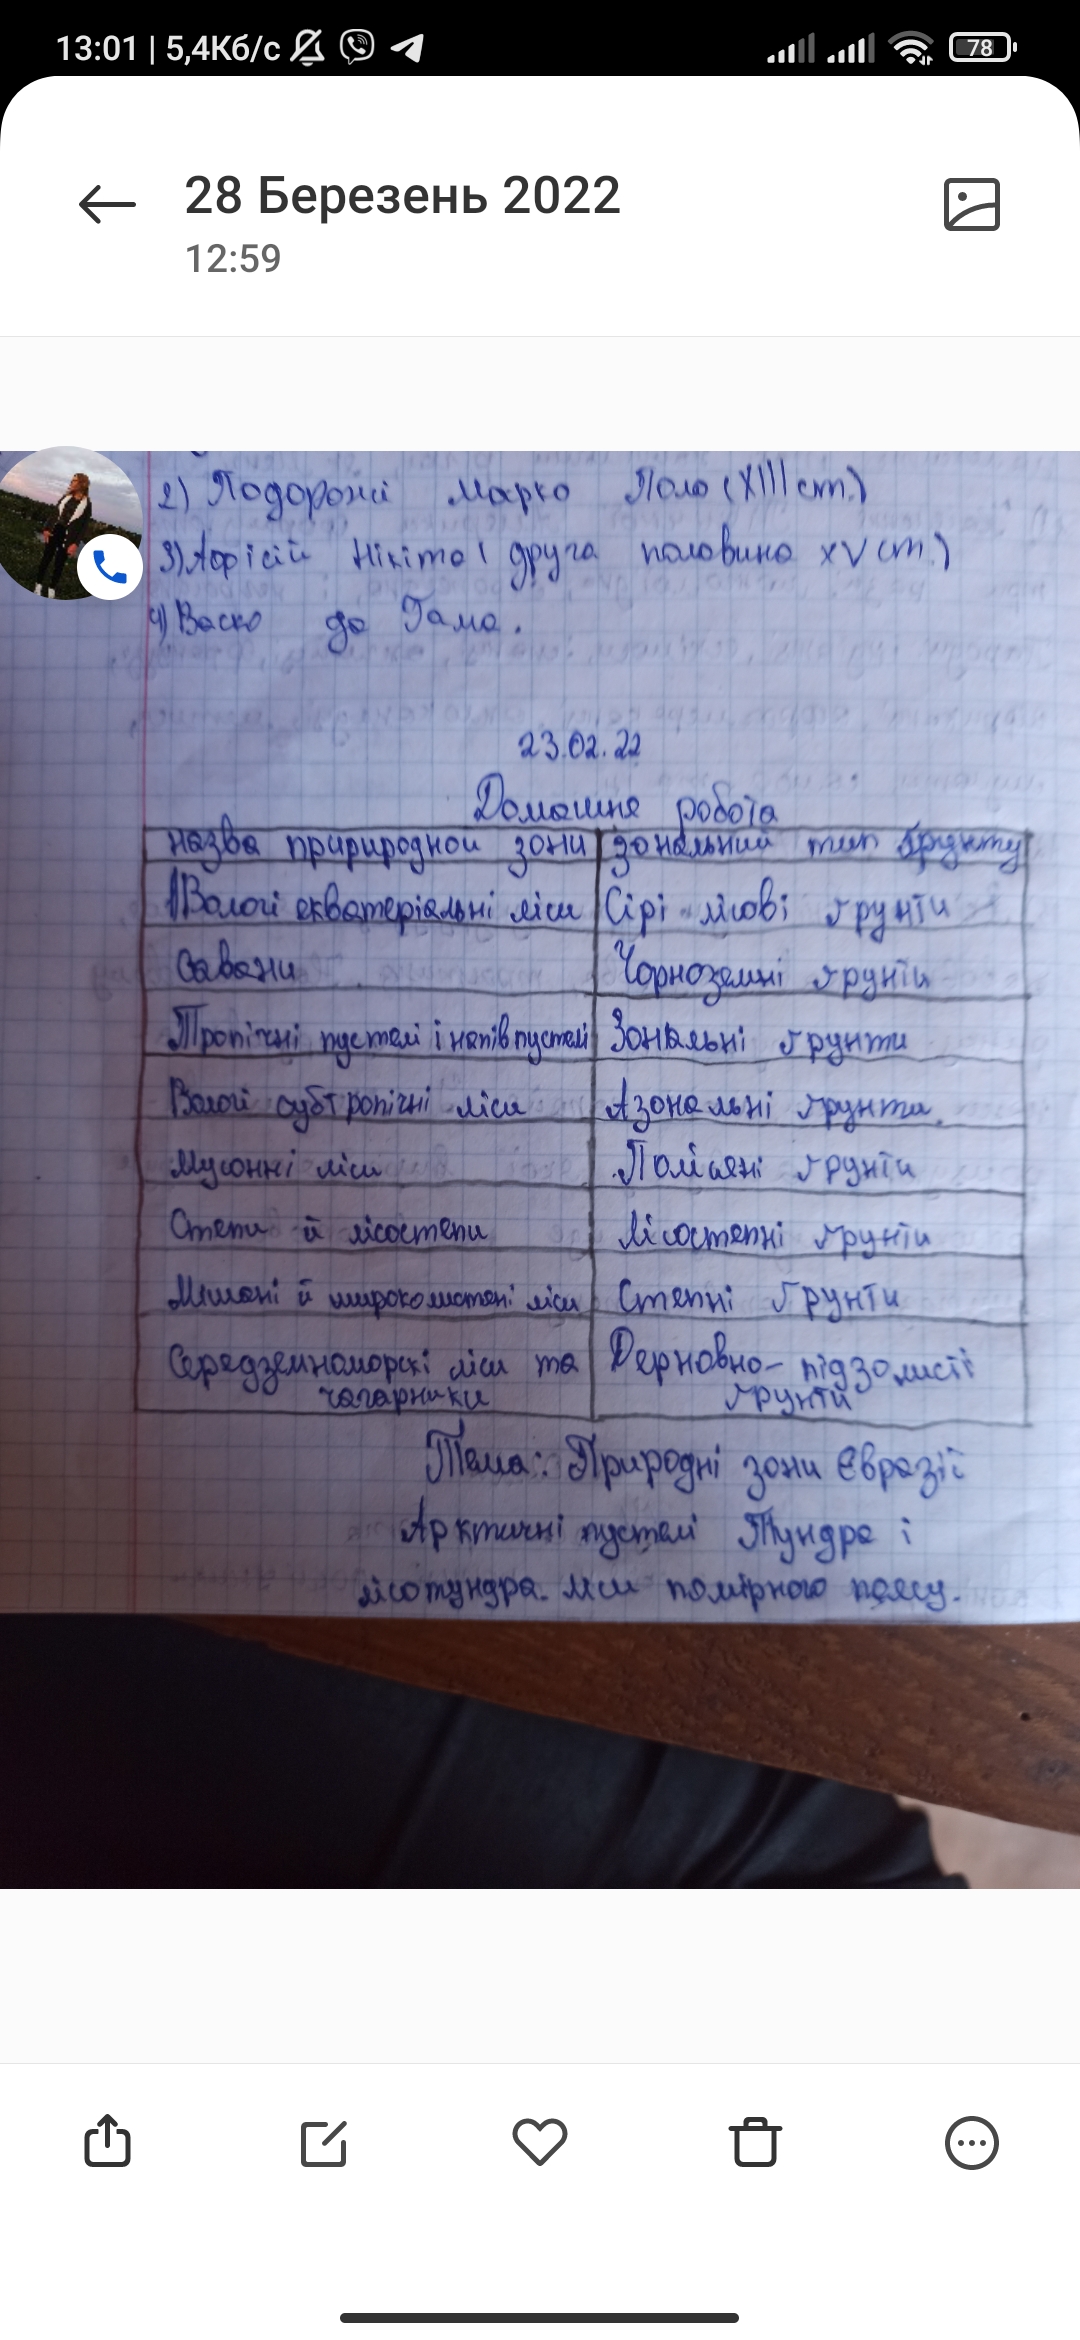 13:01 | 5,4Кб/с
78
28 Березень 2022
12:59
2) Подорожі Марко Поло (XIII ст.)
3) Афісій Нікіта ( друга половина XV ст.)
4) Васко да Гама.
23.02.22
Домашня робота
назва пририродної зони зональний тип ґрунту
1Вологі екватеріальні ліси Сірі лісові ґрунти
савани Чорноземні ґрунти
Тропічні пустелі і напівпустелі Зональні ґрунти
Вологі субтропічні ліси Азональні ґрунти.
Мусонні ліси Поліські ґрунти
Степи й лісостепи Лісостепні ґрунти
Мішані й широколистяні ліси Степні ґрунти
Середземноморскі ліси та Дерновно-підзолисті
чагарники ґрунти
Тема: Природні зони Євразії
Арктичні пустелі Тундра і
лісотундра. Ліси помірного поясу.